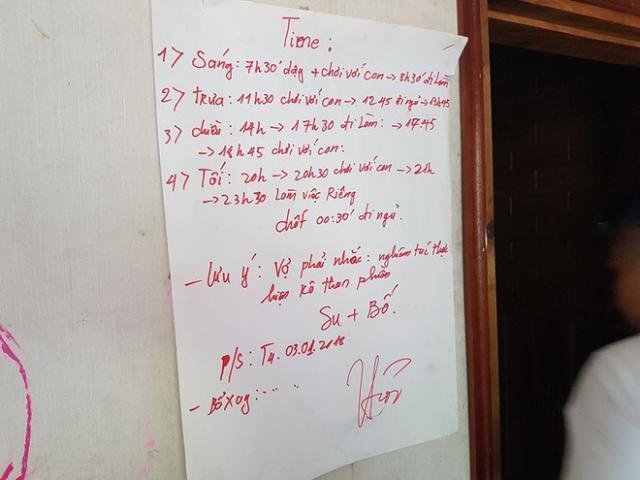 Time:
1> Sáng: 7h30' dậy + chơi với con → 8h30' đi làm
2> Trưa: 11h30 chơi với con → 12 45 đi ngủ → 13h45
3> chiều: 14h → 17h30 đi làm: → 17:45
→ 18h45 chơi với con:
4> Tối: 20h → 20h30 chơi với con → 21h
→ 23h30 làm việc Riêng
chốt 00:30' đi ngủ.
- Lưu ý: Vợ phải nhắc: nghiêm túc thực
hiện kô than phiền
Su + Bố.
P/s: T4. 03.01.2018
- Bổ xng: